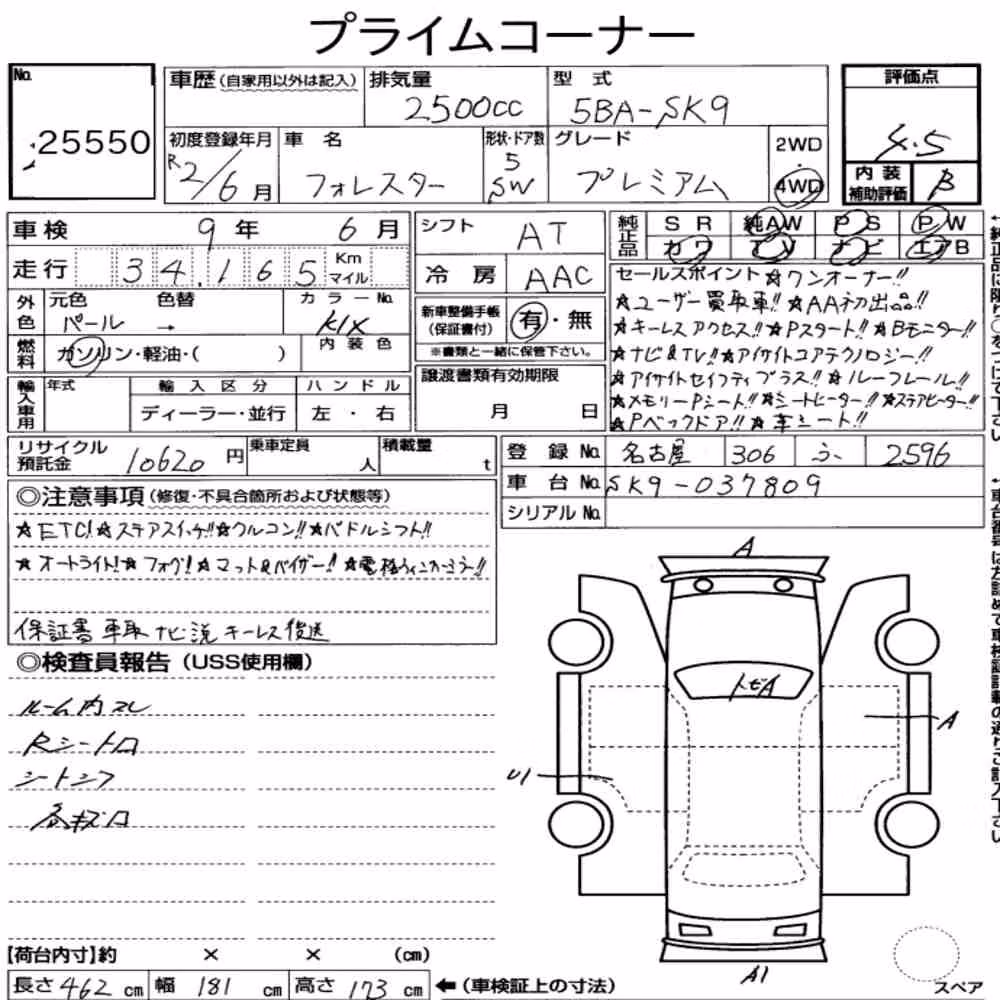 プライムコーナー
No. 25550
車歴 (自家用以外は記入) 排気量 2500cc 型式 5BA-SK9
初度登録年月 R2/6月 車名 フォレスター 形状・ドア数 5 SW グレード プレミアム 2WD・4WD
評価点 4.5
内装補助評価 B
車検 9年 6月
走行 34,165 Km マイル
外色 元色 パール 色替 → カラーNo. K1X
燃料 ガソリン・軽油・( ) 内装色
輸入車用 年式 輸入区分 ディーラー・並行 ハンドル 左・右
シフト AT
冷房 AAC
新車整備手帳(保証書付) 有・無
※書類と一緒に保管下さい。
譲渡書類有効期限 月 日
純正品 SR 純AW PS PW
カワ TV ナビ エアB
セールスポイント ☆ワンオーナー!!
☆ユーザー買取車!! ☆AA初出品!!
☆キーレスアクセス!! ☆Pスタート!! ☆Bモニター!!
☆ナビ&TV!! ☆アイサイトコアテクノロジー!!
☆アイサイトセイフティプラス!! ☆ルーフレール!!
☆メモリーPシート!! ☆シートヒーター!! ☆ステアヒーター!!
☆Pバックドア!! ☆革シート!!
リサイクル預託金 10620円 乗車定員 人 積載量 t
登録No. 名古屋 306 ふ 2596
車台No. SK9-037809
シリアルNo.
◎注意事項 (修復・不具合箇所および状態等)
☆ETC! ☆ステアスイッチ!! ☆クルコン!! ☆パドルシフト!!
☆オートライト! ☆フォグ! ☆マット&バイザー!! ☆電格ウィンカーミラー!!
保証書 車取 ナビ説 キーレス後送
◎検査員報告 (USS使用欄)
ルーム内スレ
Rシート口
シートシワ
A
トビA
A
U1
A1
スペア
【荷台内寸】約 × × (cm)
長さ 462 cm 幅 181 cm 高さ 173 cm ←(車検証上の寸法)